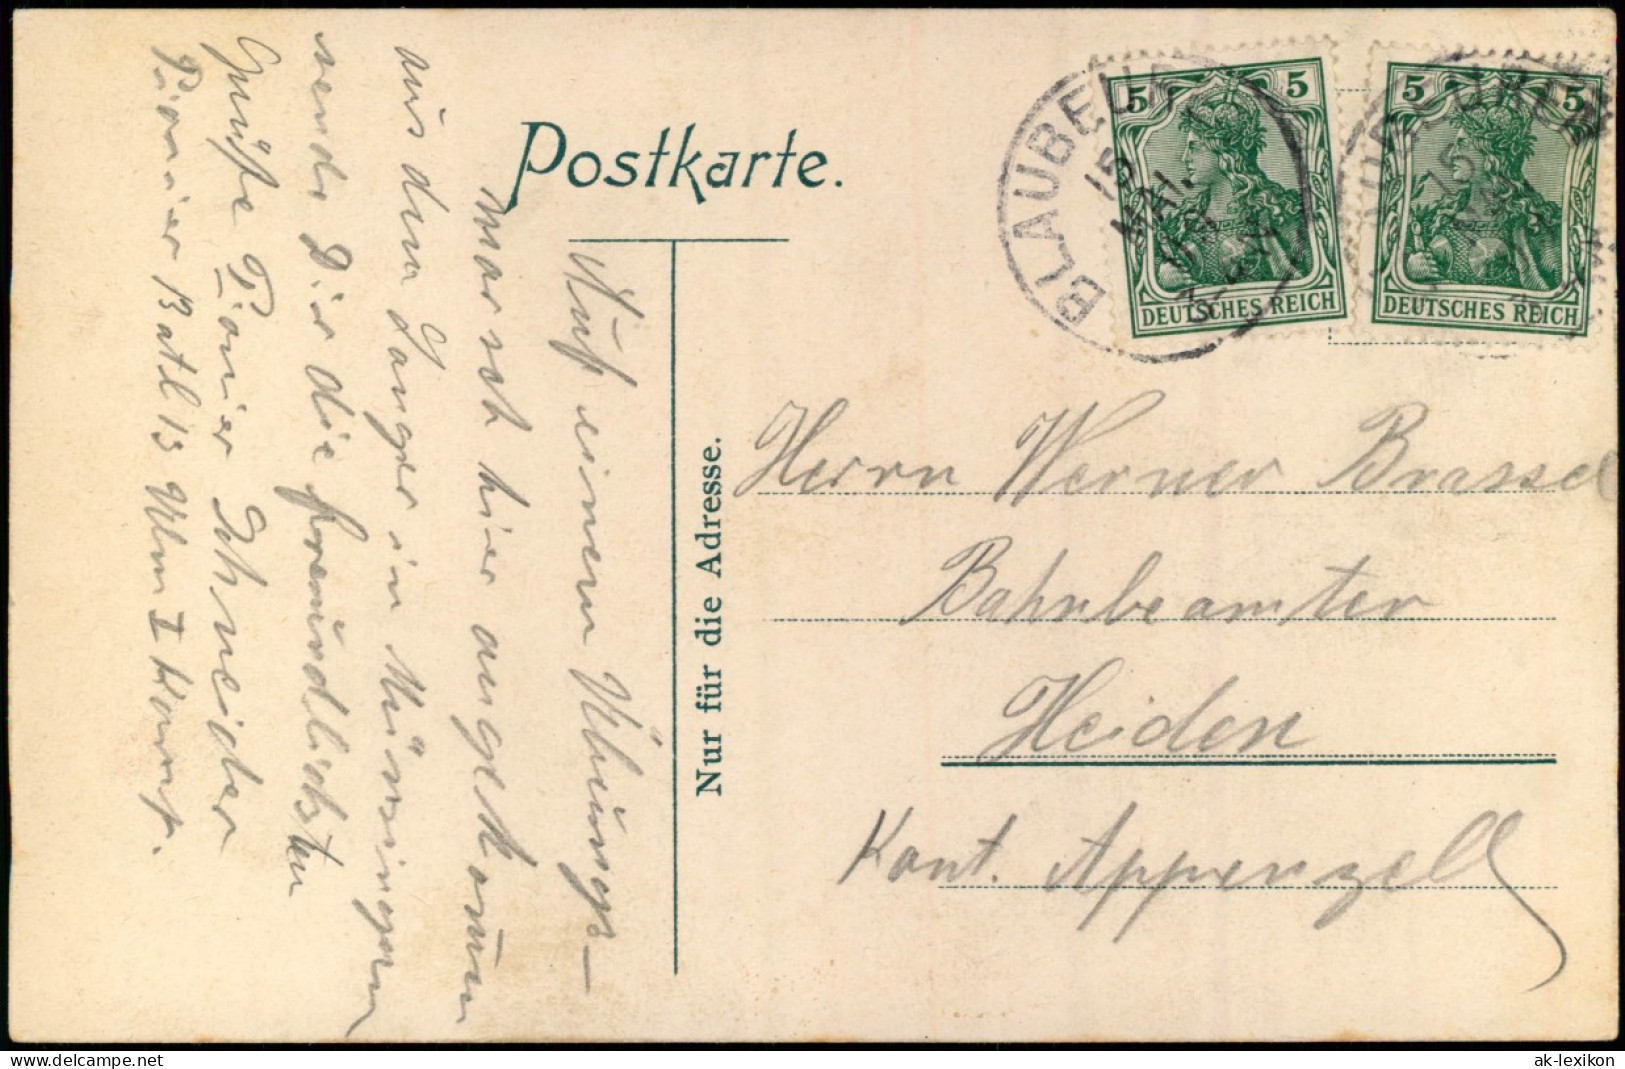 Postkarte.
Nur für die Adresse.
BLAUBEUREN
15
MAI.
5 5
DEUTSCHES REICH
5 5
DEUTSCHES REICH
15
Herrn Werner Brassel
Bahnbeamter
Heiden
Kant. Appenzell
Auf einem Übungs-
marsch hier angekommen
aus dem Lager in Münsingen
sende Dir die freundlichsten
Grüsse Pionier Schneider
Pionier Batl 13 Ulm I Komp.
ak-lexikon